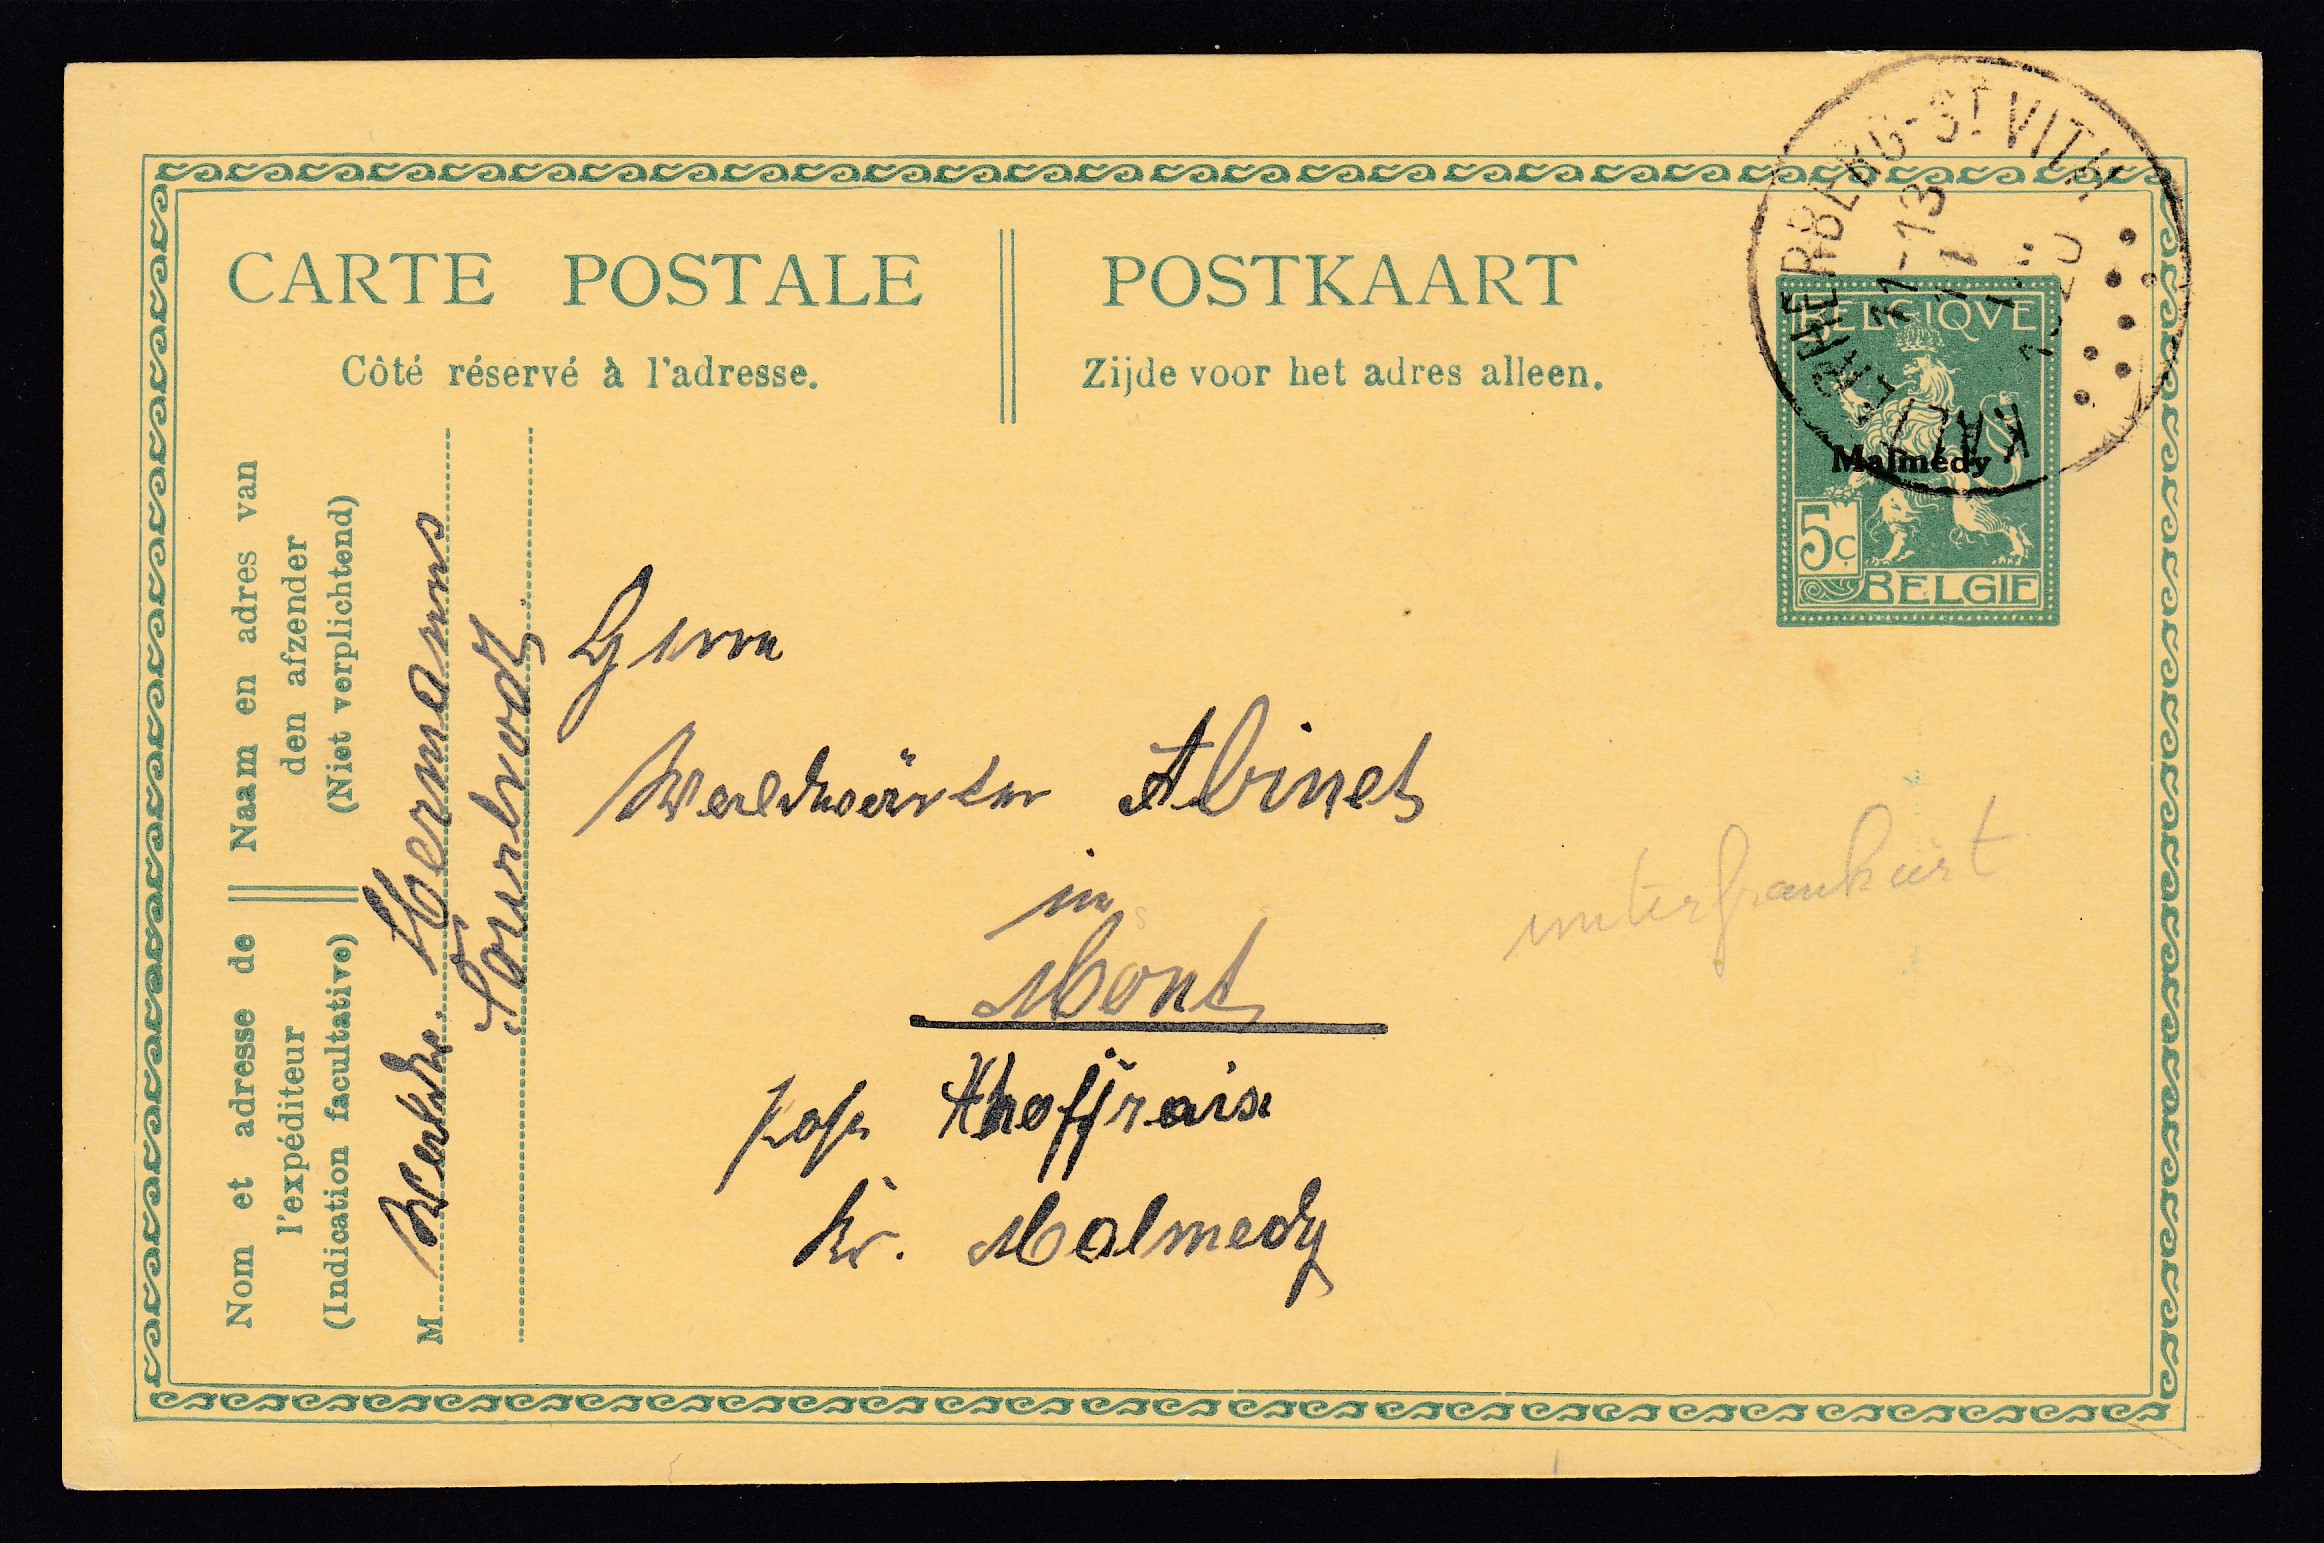 CARTE POSTALE
Côté réservé à l'adresse.
POSTKAART
Zijde voor het adres alleen.
KALTERHERBERG-ST VITH
11-13
11
20
BELGIQVE
Malmédy
5c
BELGIE
Naam en adres van
den afzender
(Niet verplichtend)
Nom et adresse de
l'expéditeur
(Indication facultative)
M. Hermanns
Sourbrodt
Herrn
Abinet
in
Mont
Post
Kr. Malmedy
unterfrankiert